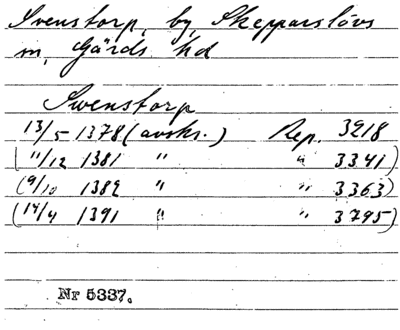 Svenstorp, by, Skepparslövs
sn, Gärds hd
Swenstorp
13/5 1378 (avskr.) Rep. 3218
(11/12 1381 " " 3341)
(9/10 1382 " " 3363)
(14/4 1391 " " 3795)
Nr 5337.